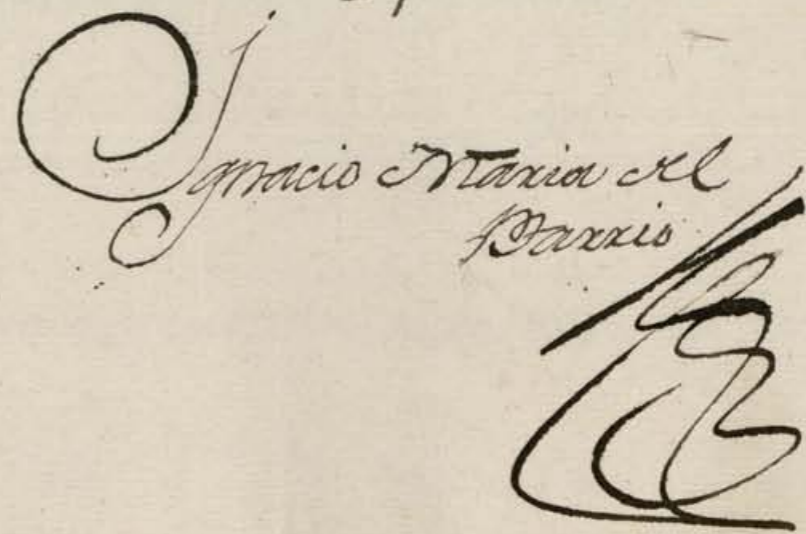 Ignacio Maria del
Barrio